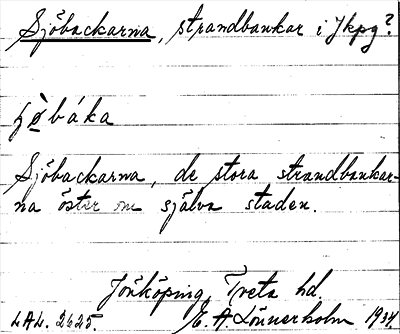 Sjöbackarna, strandbankar i Jkpg?
Sjöbackarna, de stora strandbankar-
na öster om själva staden.
Jönköping, Tveta hd.
LAL. 2625. E. A. Lönnerholm 1934.